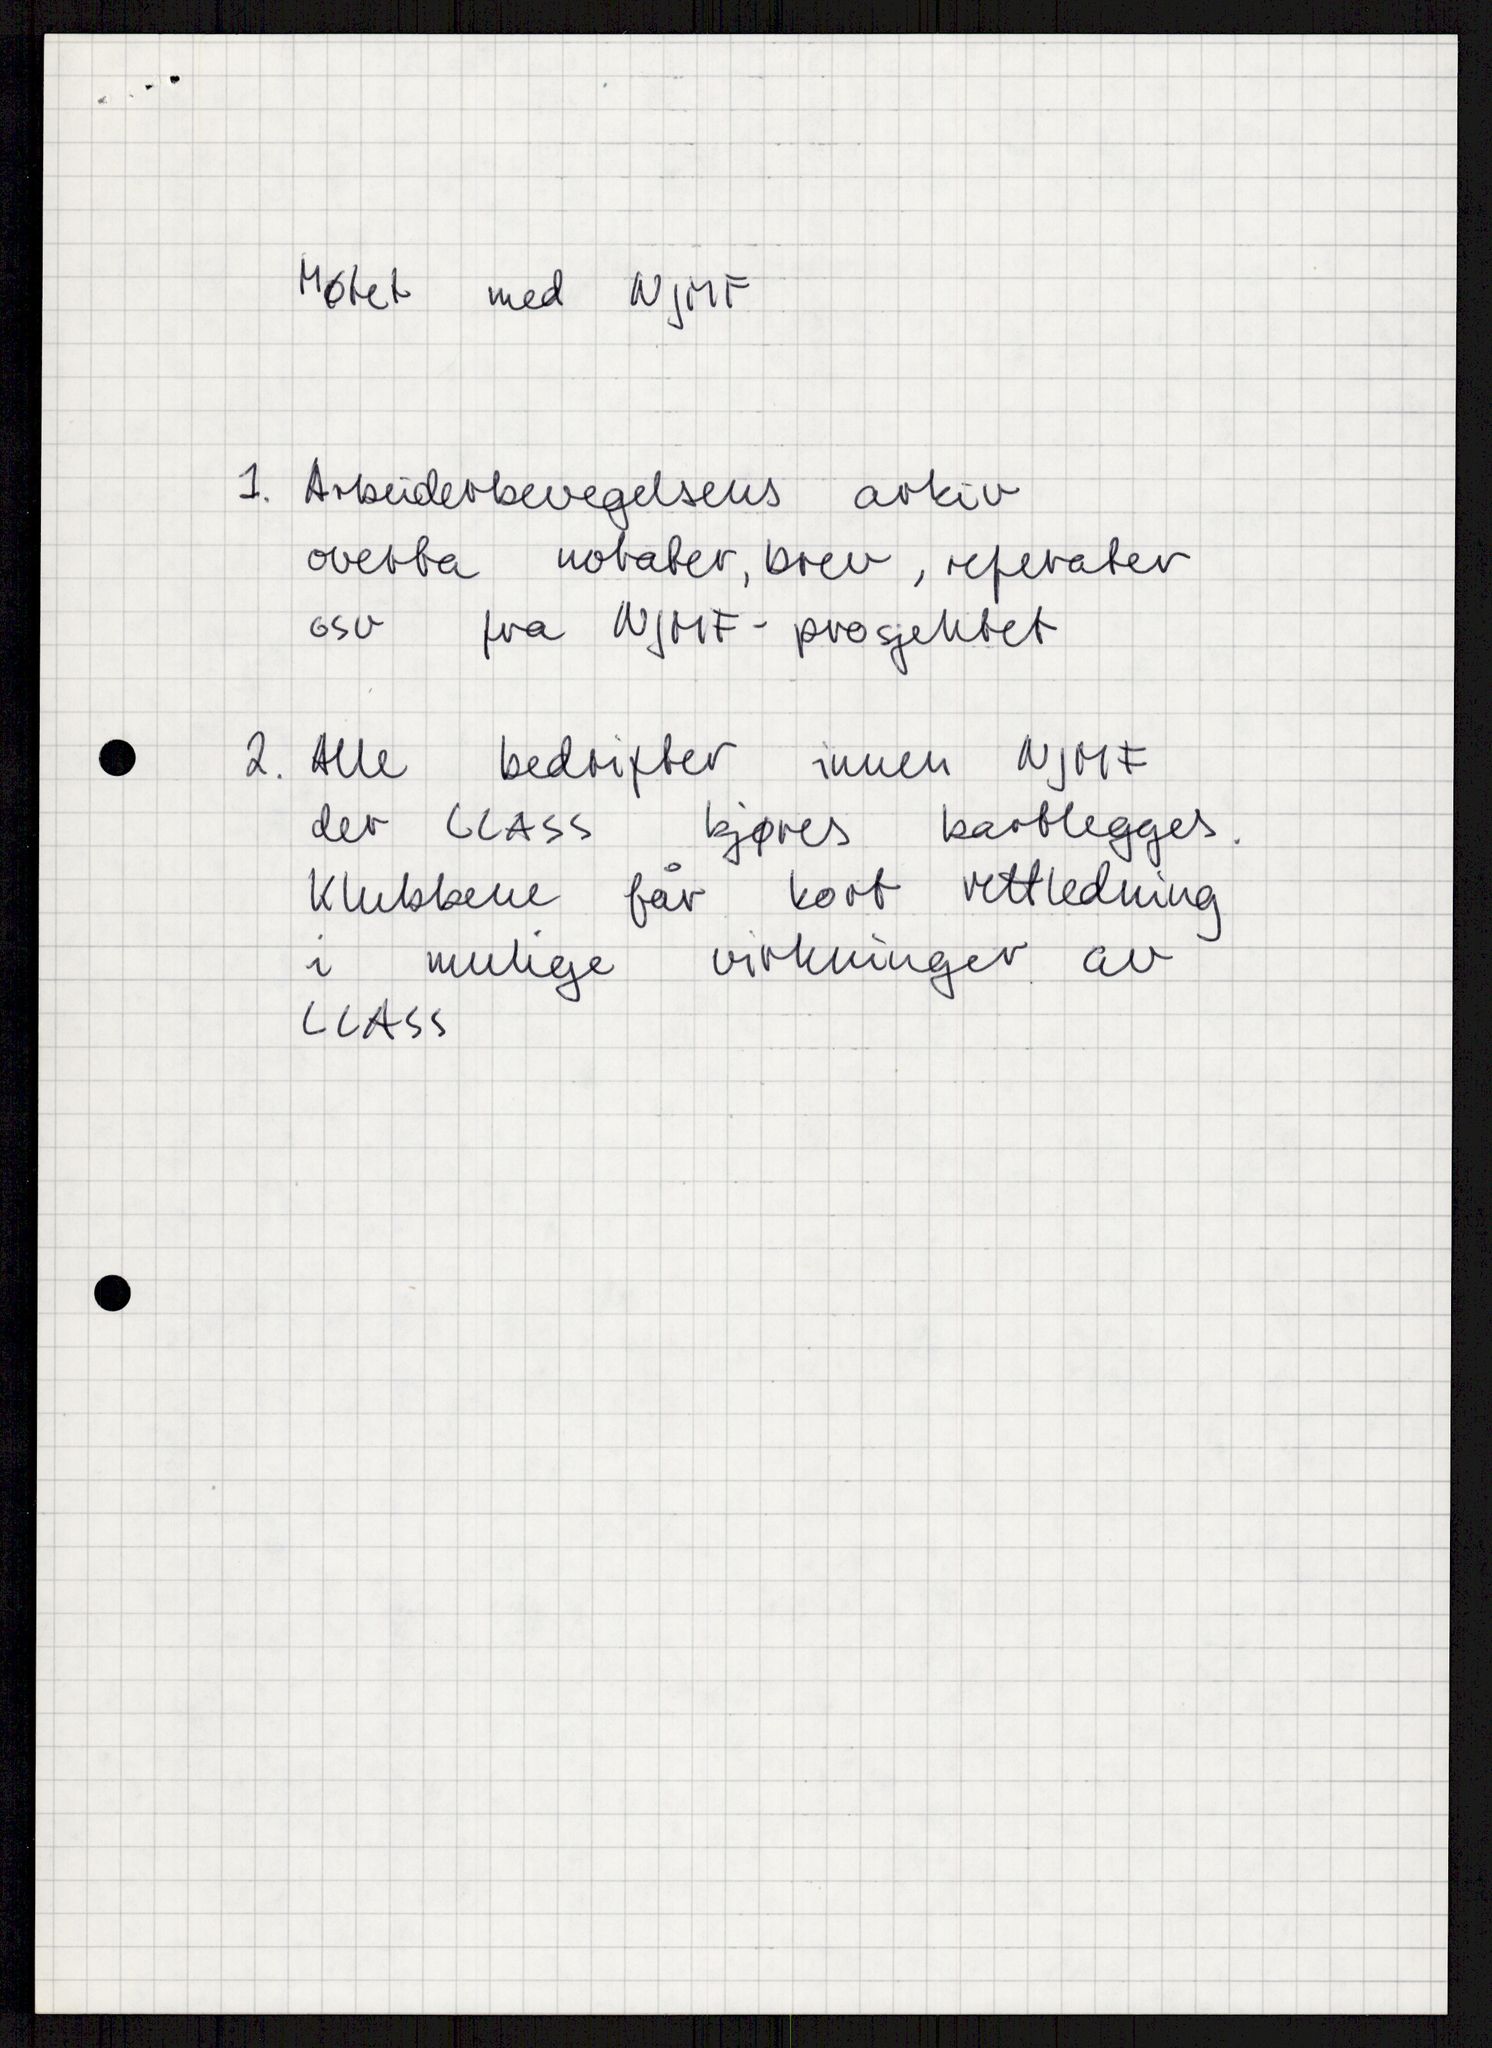 Møtet med NJMF
1. Arbeiderbevegelsens arkiv
overta notater, brev, referater
osv fra NJMF-prosjektet
2. Alle bedrifter innen NJMF
der CLASS kjøres kartlegges.
Klubbene får kort rettledning
i mulige virkninger av
CLASS